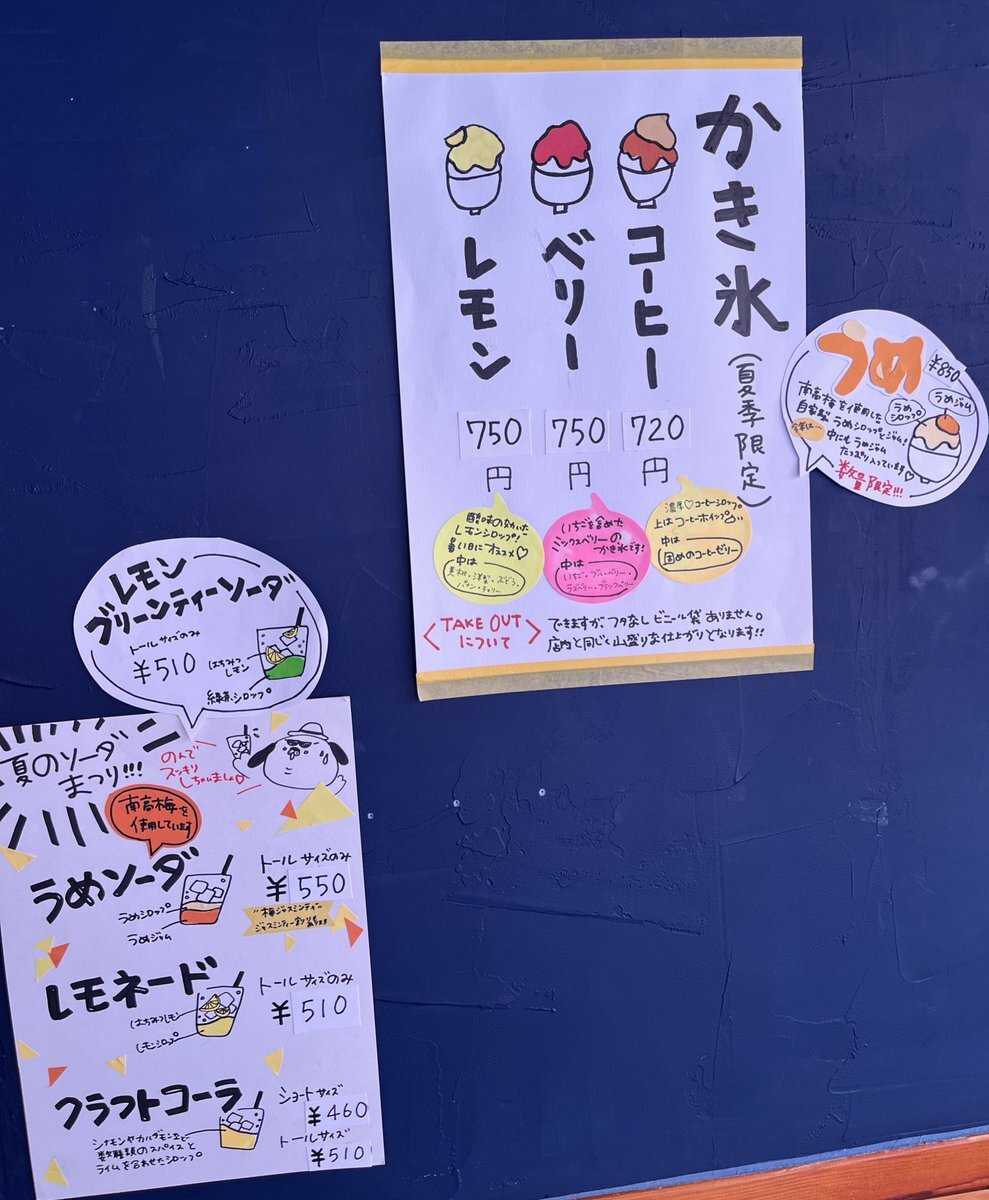 かき氷
(夏季限定)
コーヒー
720
円
濃厚♡コーヒーシロップ。
上はコーヒーホイップ
中は
固めのコーヒーゼリー
ベリー
750
円
いちごを含めた
ミックスベリーの
かき氷です!
中は
いちご・ブルーベリー・
ラズベリー・ブラックベリー
レモン
750
円
酸味の効いた
レモンシロップ!
暑い日にオススメ♡
中は
黄桃・洋梨・ぶどう・
パイン・チェリー
<TAKE OUTについて>
できますがフタなしビニール袋ありません。
店内と同じく山盛りな仕上がりとなります!!
うめ
¥850
南高梅を使用した
自家製うめシロップとジャム!
今年は…
中にもうめジャム
たっぷり入っています♡
数量限定!!!
うめシロップ
うめジャム
レモン
グリーンティーソーダ
トールサイズのみ
¥510
はちみつ
レモン
緑茶シロップ
夏のソーダ
まつり!!!
のんで
スッキリ
しちゃいましょ♡
南高梅を
使用しています
うめソーダ
トールサイズのみ
¥550
うめシロップ
うめジャム
"梅ジャスミンティ"
ジャスミンティー割りもあります
レモネード
トールサイズのみ
¥510
はちみつレモン
レモンシロップ
クラフトコーラ
ショートサイズ
¥460
トールサイズ
¥510
シナモンやカルダモンなど
数種類のスパイスと
ライムを合わせたシロップ。